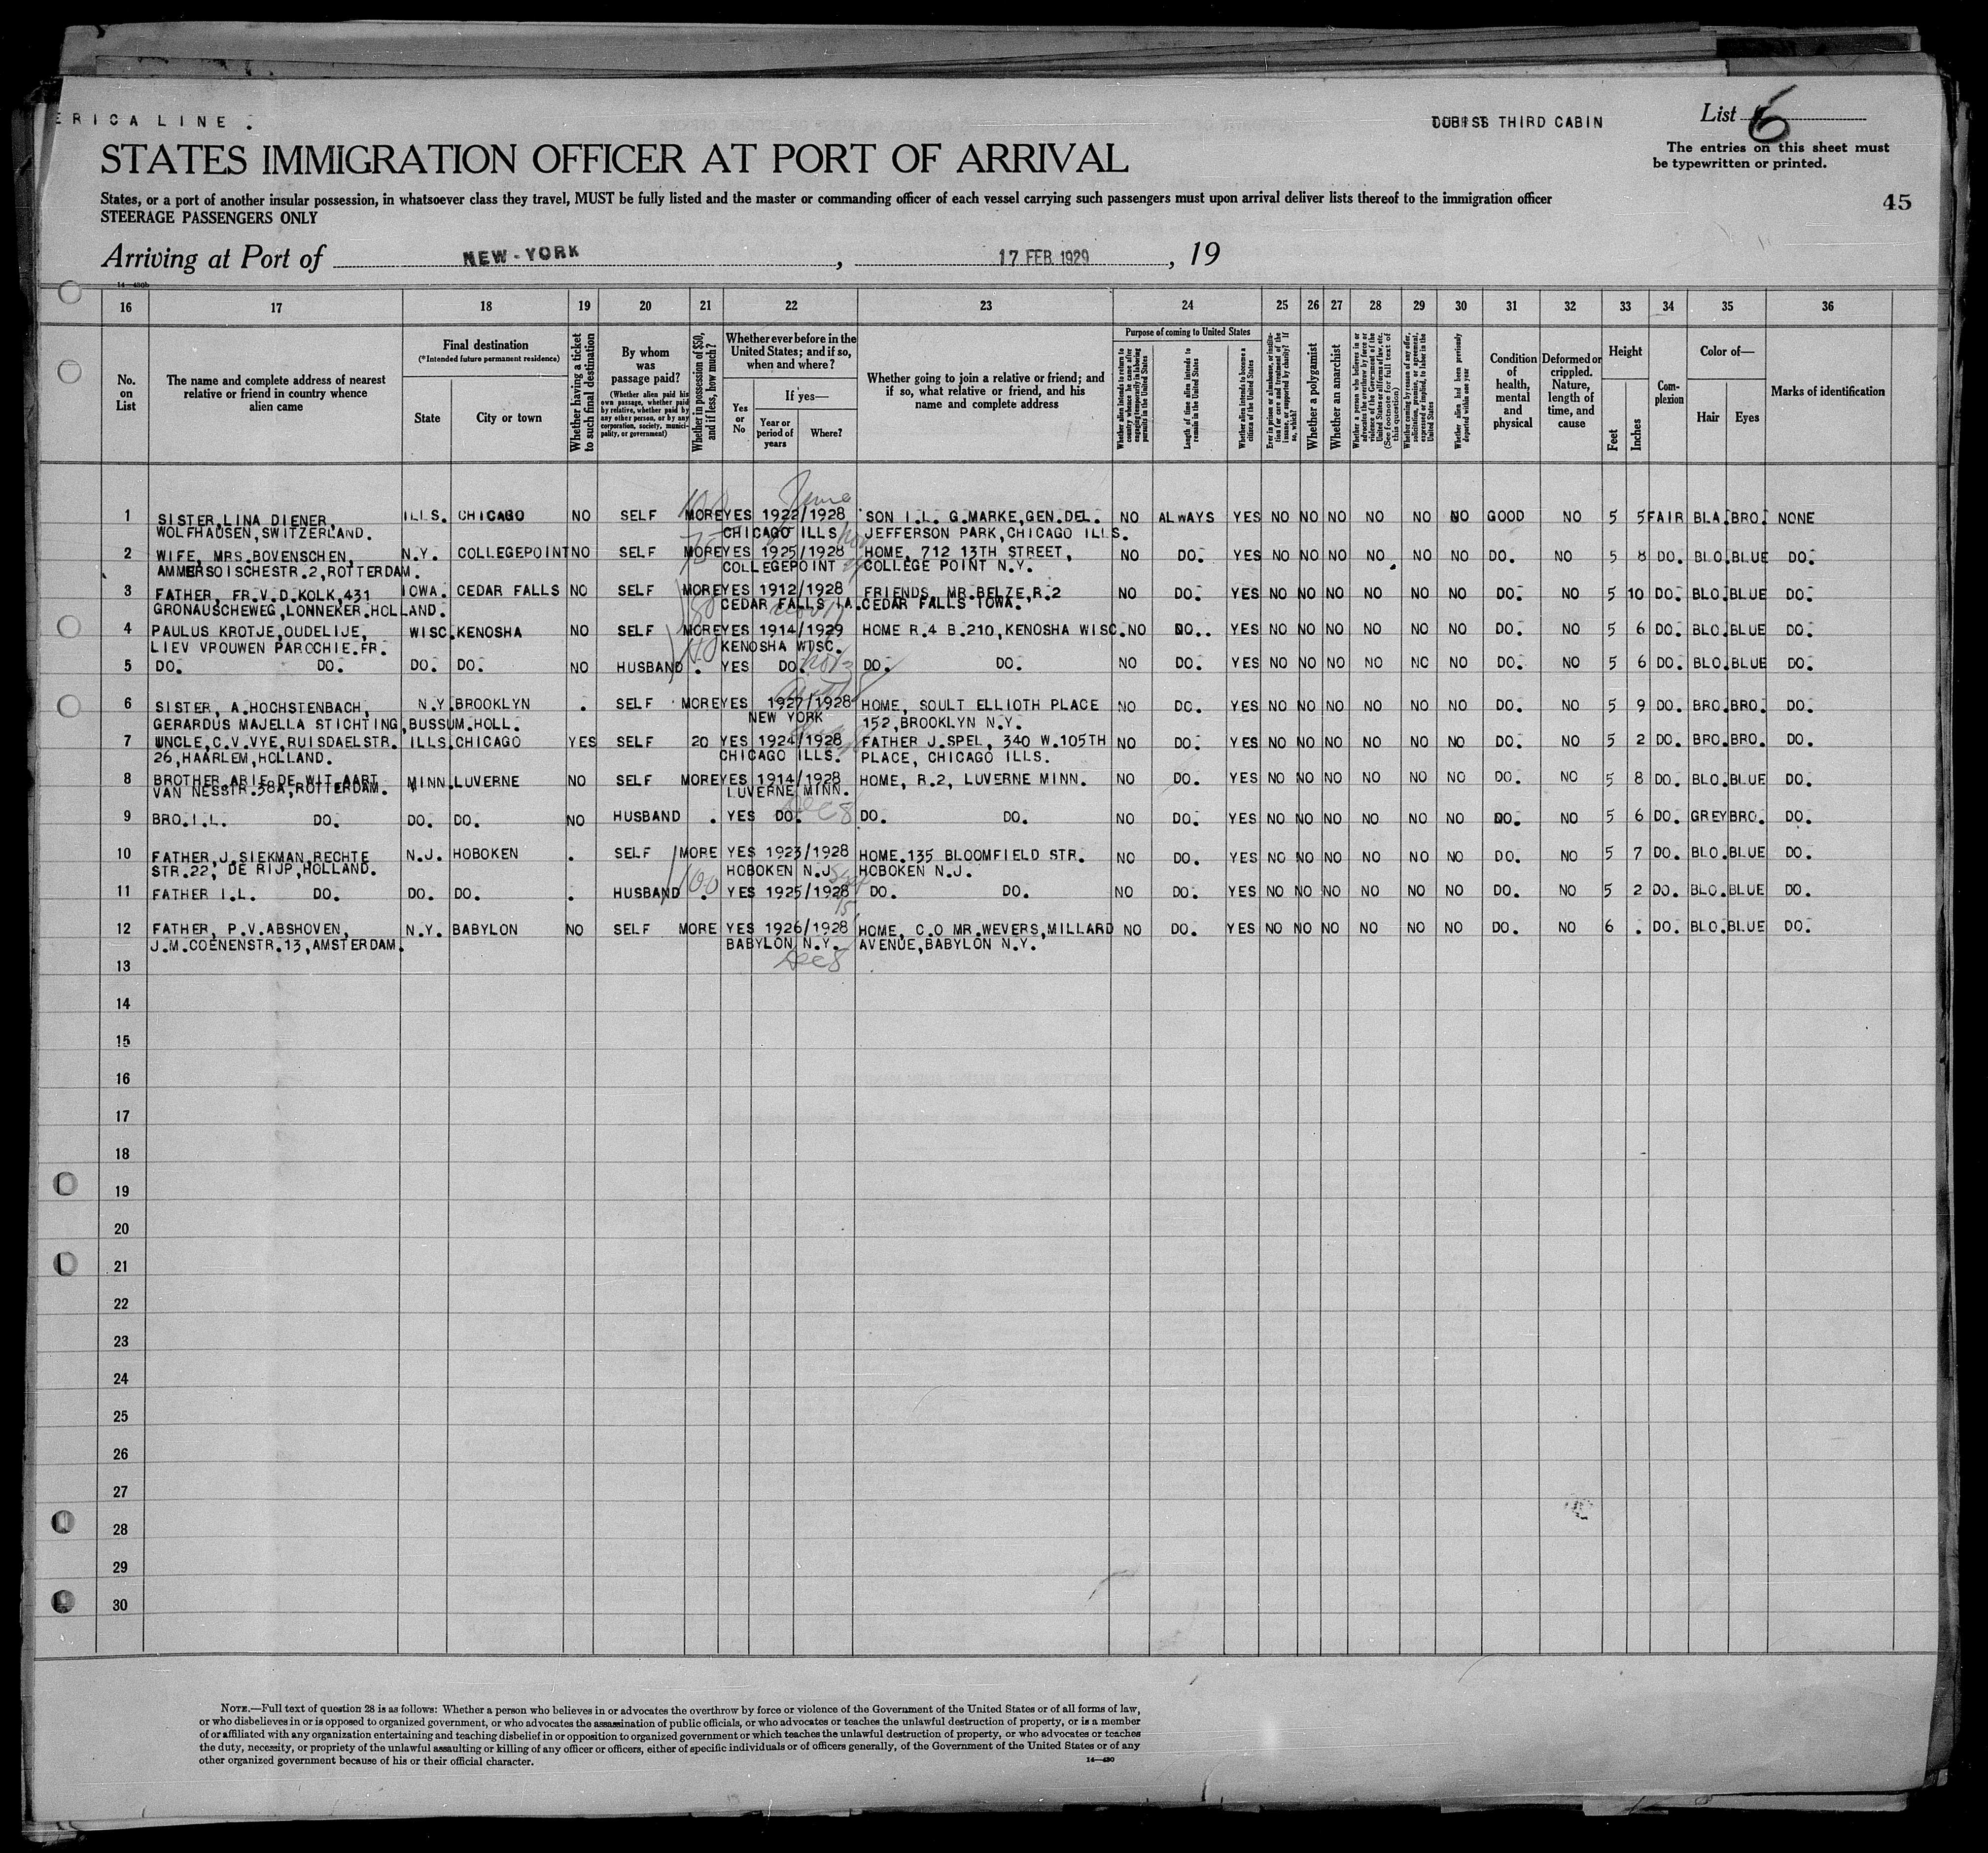 ERICA LINE .
THIRD CABIN
List 6
The entries on this sheet must
be typewritten or printed.
STATES IMMIGRATION OFFICER AT PORT OF ARRIVAL
States, or a port of another insular possession, in whatsoever class they travel, MUST be fully listed and the master or commanding officer of each vessel carrying such passengers must upon arrival deliver lists thereof to the immigration officer
STEERAGE PASSENGERS ONLY
45
Arriving at Port of NEW-YORK , 17 FEB 1929 , 19
14—430b
16 17 18 19 20 21 22 23 24 25 26 27 28 29 30 31 32 33 34 35 36
No. on List
The name and complete address of nearest relative or friend in country whence alien came
Final destination
(*Intended future permanent residence)
State
City or town
Whether having a ticket to such final destination
By whom was passage paid?
(Whether alien paid his own passage, whether paid by relative, whether paid by any other person, or by any corporation, society, municipality, or government)
Whether in possession of $50, and if less, how much?
Whether ever before in the United States; and if so, when and where?
Yes or No
If yes—
Year or period of years
Where?
Whether going to join a relative or friend; and if so, what relative or friend, and his name and complete address
Purpose of coming to United States
Whether alien intends to return to country whence he came after engaging temporarily in laboring pursuits in the United States
Length of time alien intends to remain in the United States
Whether alien intends to become a citizen of the United States
Ever in prison or almshouse, or institution for care and treatment of the insane, or supported by charity? If so, which?
Whether a polygamist
Whether an anarchist
Whether a person who believes in or advocates the overthrow by force or violence of the Government of the United States or all forms of law, etc. (See footnote for full text of this question)
Whether coming by reason of any offer, solicitation, promise, or agreement, expressed or implied, to labor in the United States
Whether alien had been previously deported within one year
Condition of health, mental and physical
Deformed or crippled. Nature, length of time, and cause
Height
Feet
Inches
Complexion
Color of—
Hair
Eyes
Marks of identification
June
1 SISTER, LINA DIENER, ILLS. CHICAGO NO SELF MORE YES 1922/1928 SON I.L. G.MARKE, GEN.DEL. NO ALWAYS YES NO NO NO NO NO NO GOOD NO 5 5 FAIR BLA. BRO. NONE
WOLFHAUSEN, SWITZERLAND. CHICAGO ILLS JEFFERSON PARK, CHICAGO ILLS.
2 WIFE, MRS.BOVENSCHEN, N.Y. COLLEGEPOINT NO SELF MORE YES 1925/1928 HOME, 712 13TH STREET, NO DO. YES NO NO NO NO NO NO DO. NO 5 8 DO. BLO. BLUE DO.
AMMERSOISCHESTR.2, ROTTERDAM. COLLEGEPOINT COLLEGE POINT N.Y.
3 FATHER, FR.V.D.KOLK, 431 IOWA. CEDAR FALLS NO SELF MORE YES 1912/1928 FRIENDS, MR.BELZE, R.2 NO DO. YES NO NO NO NO NO NO DO. NO 5 10 DO. BLO. BLUE DO.
GRONAUSCHEWEG, LONNEKER.HOLLAND. CEDAR FALLS IA. CEDAR FALLS IOWA.
4 PAULUS KROTJE, OUDELIJE, WISC. KENOSHA NO SELF MORE YES 1914/1929 HOME R.4 B.210, KENOSHA WISC. NO DO.. YES NO NO NO NO NO NO DO. NO 5 6 DO. BLO. BLUE DO.
LIEV VROUWEN PAROCHIE.FR. KENOSHA WISC.
5 DO. DO. DO. DO. NO HUSBAND . YES DO. DO. DO. NO DO. YES NO NO NO NO NO NO DO. NO 5 6 DO. BLO. BLUE DO.
6 SISTER, A.HOCHSTENBACH, N.Y. BROOKLYN . SELF MORE YES 1927/1928 HOME, SOULT ELLIOTH PLACE NO DO. YES NO NO NO NO NO NO DO. NO 5 9 DO. BRO. BRO. DO.
GERARDUS MAJELLA STICHTING, BUSSUM.HOLL. NEW YORK 152, BROOKLYN N.Y.
7 UNCLE, C.V.VYE, RUISDAELSTR. ILLS. CHICAGO YES SELF 20 YES 1924/1928 FATHER J.SPEL, 340 W.105TH NO DO. YES NO NO NO NO NO NO DO. NO 5 2 DO. BRO. BRO. DO.
26, HAARLEM, HOLLAND. CHICAGO ILLS. PLACE, CHICAGO ILLS.
8 BROTHER ARIE DE WIT AART MINN. LUVERNE NO SELF MORE YES 1914/1928 HOME, R.2, LUVERNE MINN. NO DO. YES NO NO NO NO NO NO DO. NO 5 8 DO. BLO. BLUE DO.
VAN NESSTR.38A, ROTTERDAM. LUVERNE MINN.
Dec 8
9 BRO.I.L. DO. DO. DO. NO HUSBAND . YES DO. DO. DO. NO DO. YES NO NO NO NO NO NO DO. NO 5 6 DO. GREY BRO. DO.
10 FATHER, J.SIEKMAN, RECHTE N.J. HOBOKEN . SELF MORE YES 1923/1928 HOME.135 BLOOMFIELD STR. NO DO. YES NO NO NO NO NO NO DO. NO 5 7 DO. BLO. BLUE DO.
STR.22, DE RIJP, HOLLAND. HOBOKEN N.J HOBOKEN N.J.
100
11 FATHER I.L. DO. DO. DO. . HUSBAND . YES 1925/1928 DO. DO. NO DO. YES NO NO NO NO NO NO DO. NO 5 2 DO. BLO. BLUE DO.
15
12 FATHER, P.V.ABSHOVEN, N.Y. BABYLON NO SELF MORE YES 1926/1928 HOME, C.O MR.WEVERS, MILLARD NO DO. YES NO NO NO NO NO NO DO. NO 6 . DO. BLO. BLUE DO.
J.M.COENENSTR.13, AMSTERDAM. BABYLON N.Y. AVENUE, BABYLON N.Y.
Dec 8
13
14
15
16
17
18
19
20
21
22
23
24
25
26
27
28
29
30
NOTE.—Full text of question 28 is as follows: Whether a person who believes in or advocates the overthrow by force or violence of the Government of the United States or of all forms of law,
or who disbelieves in or is opposed to organized government, or who advocates the assassination of public officials, or who advocates or teaches the unlawful destruction of property, or is a member
of or affiliated with any organization entertaining and teaching disbelief in or opposition to organized government or which teaches the unlawful destruction of property, or who advocates or teaches
the duty, necessity, or propriety of the unlawful assaulting or killing of any officer or officers, either of specific individuals or of officers generally, of the Government of the United States or of any
other organized government because of his or their official character.
14—430